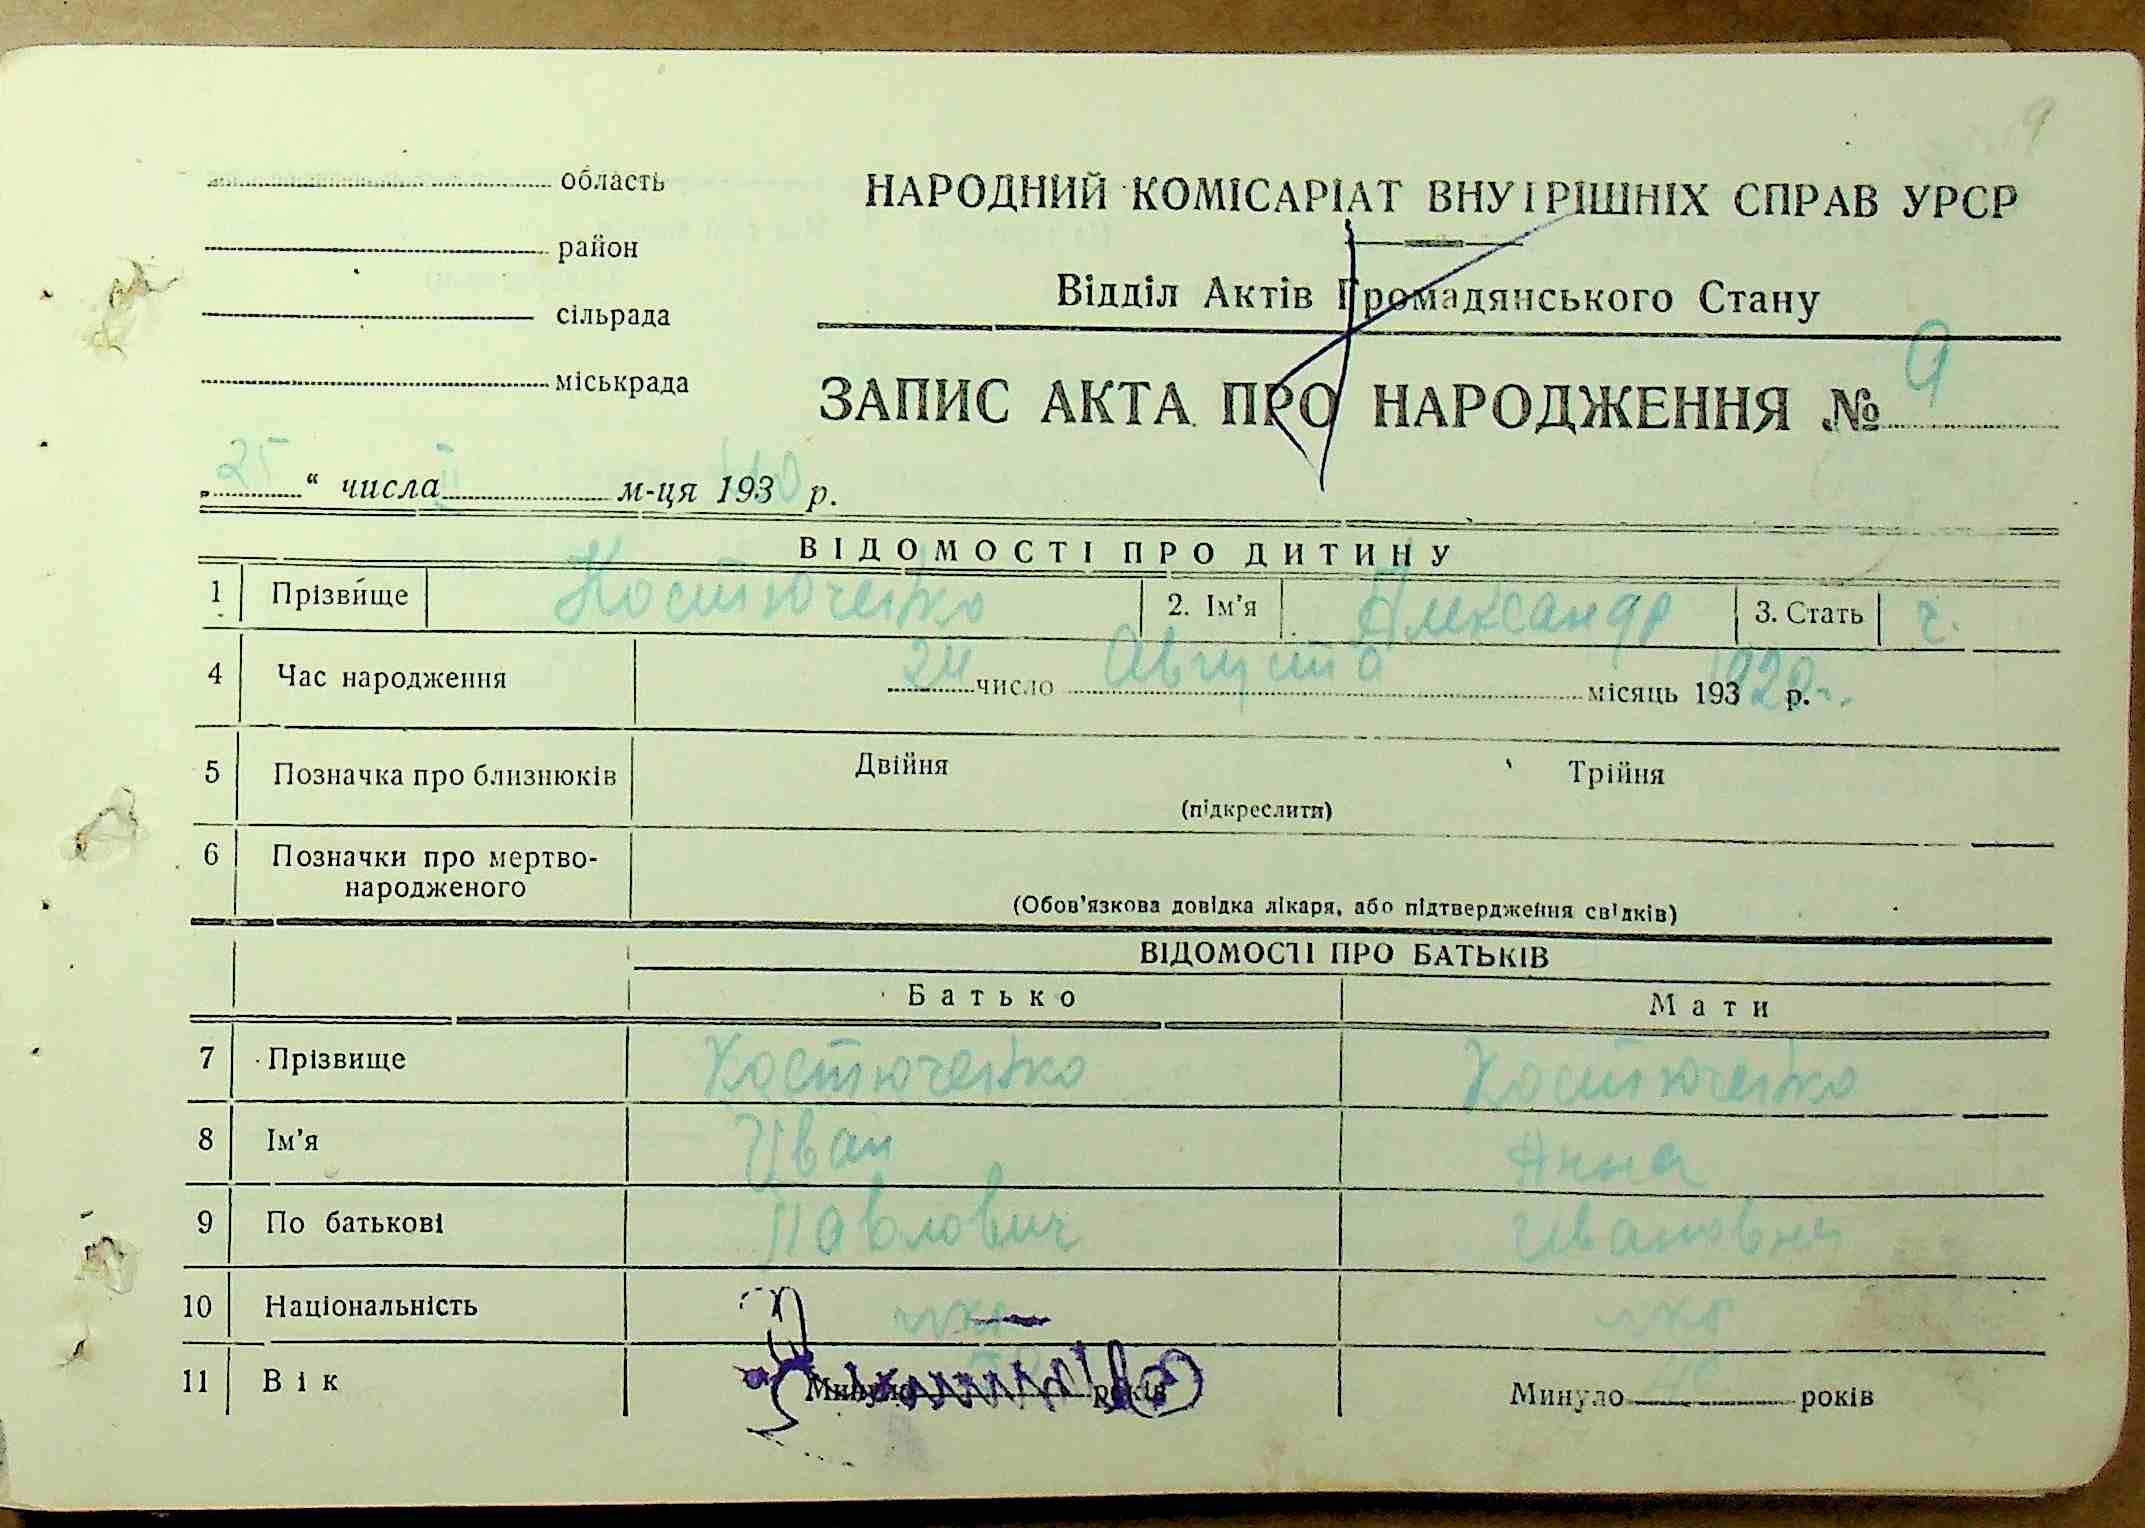 9
область
район
сільрада
міськрада
НАРОДНИЙ КОМІСАРІАТ ВНУТРІШНІХ СПРАВ УРСР
Відділ Актів Громадянського Стану
ЗАПИС АКТА ПРО НАРОДЖЕННЯ № 9
„ 25 “ числа II м-ця 193 40 р.
ВІДОМОСТІ ПРО ДИТИНУ
1 Прізвище Костюченко 2. Ім'я Александр 3. Стать ч.
4 Час народження 24 число Августа місяць 193 1920 р.
5 Позначка про близнюків Двійня Трійня
(підкреслити)
6 Позначки про мертво-
народженого
(Обов'язкова довідка лікаря, або підтвердження свідків)
ВІДОМОСТІ ПРО БАТЬКІВ
Батько Мати
7 Прізвище Костюченко Костюченко
8 Ім'я Иван Анна
9 По батькові Павлович Ивановна
10 Національність укр укр
11 Вік Минуло років Минуло років